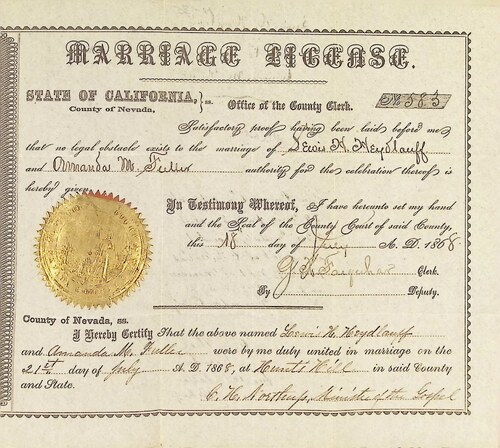 MARRIAGE LICENSE.
STATE OF CALIFORNIA, } ss. Office of the County Clerk. No 583
County of Nevada,
Satisfactory proof having been laid before me
that no legal obstacle exists to the marriage of Lewis H. Heydlauff
and Amanda M. Fuller authority for the celebration thereof is
hereby given.
In Testimony Whereof, I have hereunto set my hand
and the Seal of the County Court of said County,
this 18 day of July A. D. 1868.
Clerk.
By Deputy.
County of Nevada, ss.
I Hereby Certify That the above named Lewis H. Heydlauff
and Amanda M. Fuller were by me duly united in marriage on the
21st day of July A. D. 1868, at Hunts Hill in said County
and State.
C. H. Northup, Minister of the Gospel